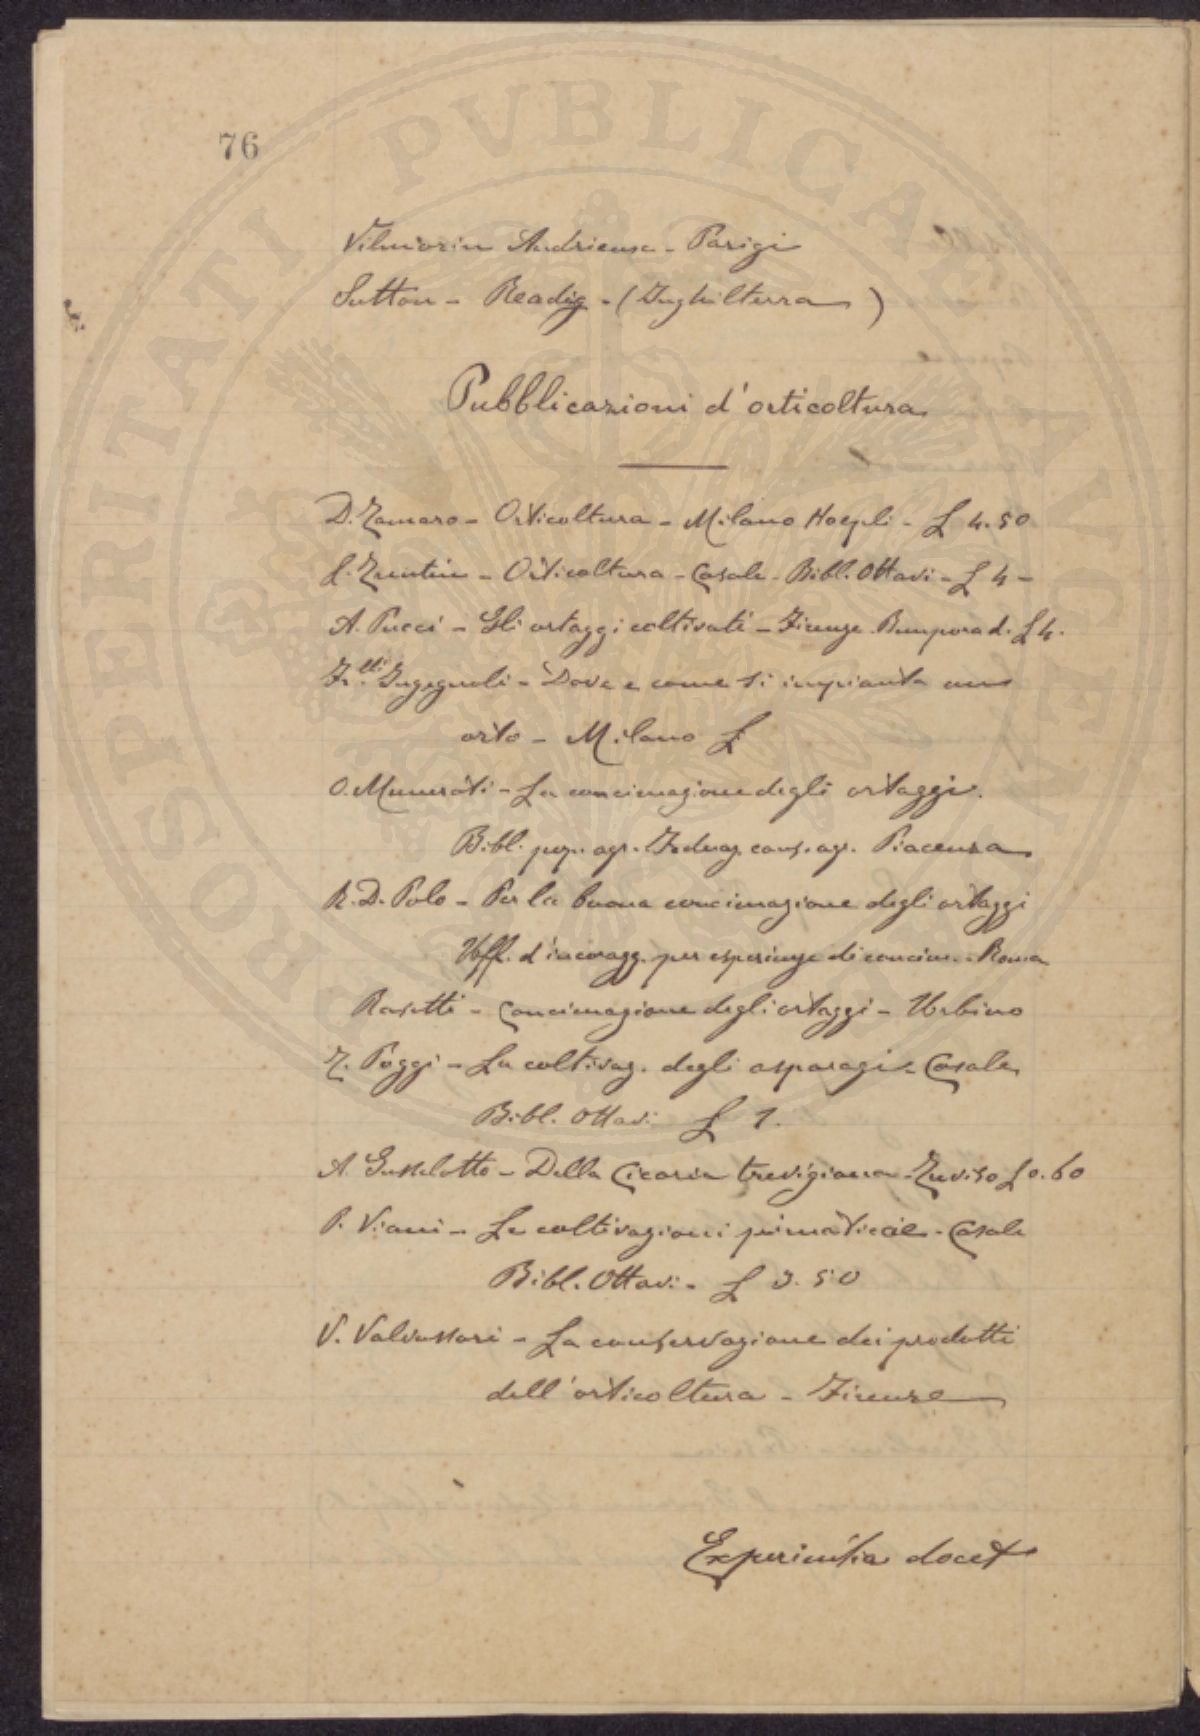 76
Vilmorin Andrieux - Parigi
Sutton - Readig - (Inghilterra)
Pubblicazioni d'orticoltura
D. Tamaro - Orticoltura - Milano Hoepli - £ 4.50
Trentin - Orticoltura - Casale - Bibl. Ottavi - £ 4 -
A. Pucci - Gli ortaggi coltivati - Firenze Bemporad. £ 4.
F.lli Ingegnoli - Dove e come si impianta un
orto - Milano £
O. Munerati - La concimazione degli ortaggi.
Bibl. pop. agr. Federaz. cons. agr. Piacenza
R. D. Polo - Per la buona concimazione degli ortaggi
Uff. d'incoragg. per esperienze di concim. - Roma
Rasetti - Concimazione degli ortaggi - Urbino
T. Poggi - La coltivaz. degli asparagi - Casale
Bibl. Ottavi £ 1.
A. - Della Cicoria trevigiana - Treviso £ 0.60
P. Viani - Le coltivazioni primaticcie - Casale
Bibl. Ottavi - £ 3.50
V. Valvassori - La conservazione dei prodotti
dell'orticoltura - Firenze
Experientia docet
PROSPERITATI PVBLICAE AVGENDAE